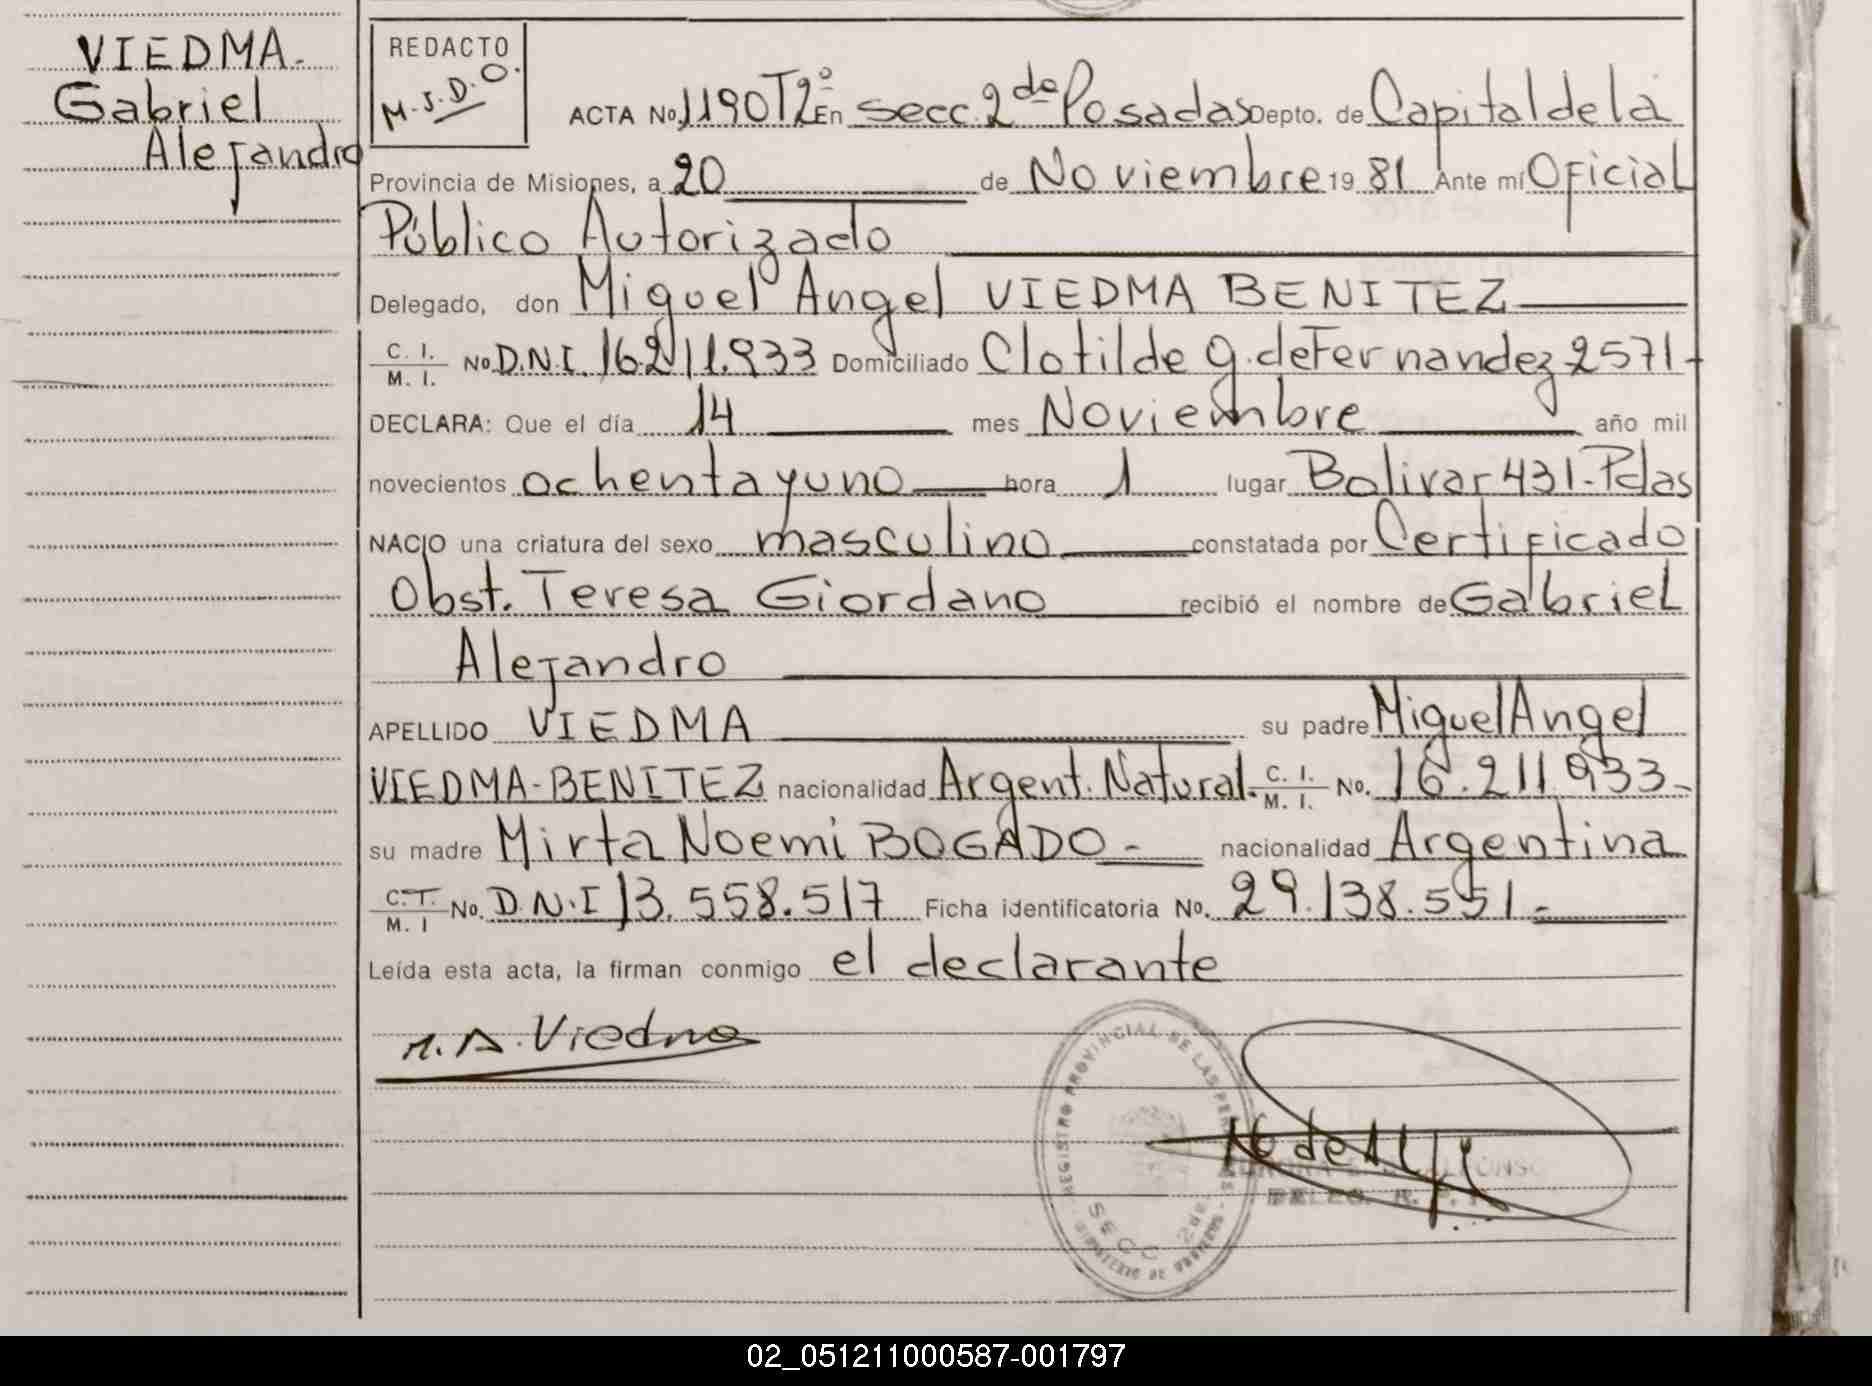 VIEDMA.
Gabriel
Alejandro
REDACTO
M.J.D.O.
ACTA No. 1190T2º En secc. 2da Posadas Depto. de Capital de la
Provincia de Misiones, a 20 de Noviembre 19 81 Ante mí Oficial
Público Autorizado
Delegado, don Miguel Angel VIEDMA BENITEZ
C. I. / M. I. No D.N.I. 16.211.933 Domiciliado Clotilde g. de Fernandez 2571-
DECLARA: Que el día 14 mes Noviembre año mil
novecientos ochentayuno hora 1 lugar Bolivar 431-Pdas
NACIO una criatura del sexo masculino constatada por Certificado
Obst. Teresa Giordano recibió el nombre de Gabriel
Alejandro
APELLIDO VIEDMA su padre Miguel Angel
VIEDMA-BENITEZ nacionalidad Argent. Natural. C. I. / M. I. No. 16.211.933-
su madre Mirta Noemi BOGADO- nacionalidad Argentina
C.T. / M. I No. D.N.I 13.558.517 Ficha identificatoria No. 29.138.551-
Leída esta acta, la firman conmigo el declarante
M.A. Viedma
REGISTRO PROVINCIAL DE LAS PERS
SECC 2da
DELEG. R. P.
02_051211000587-001797